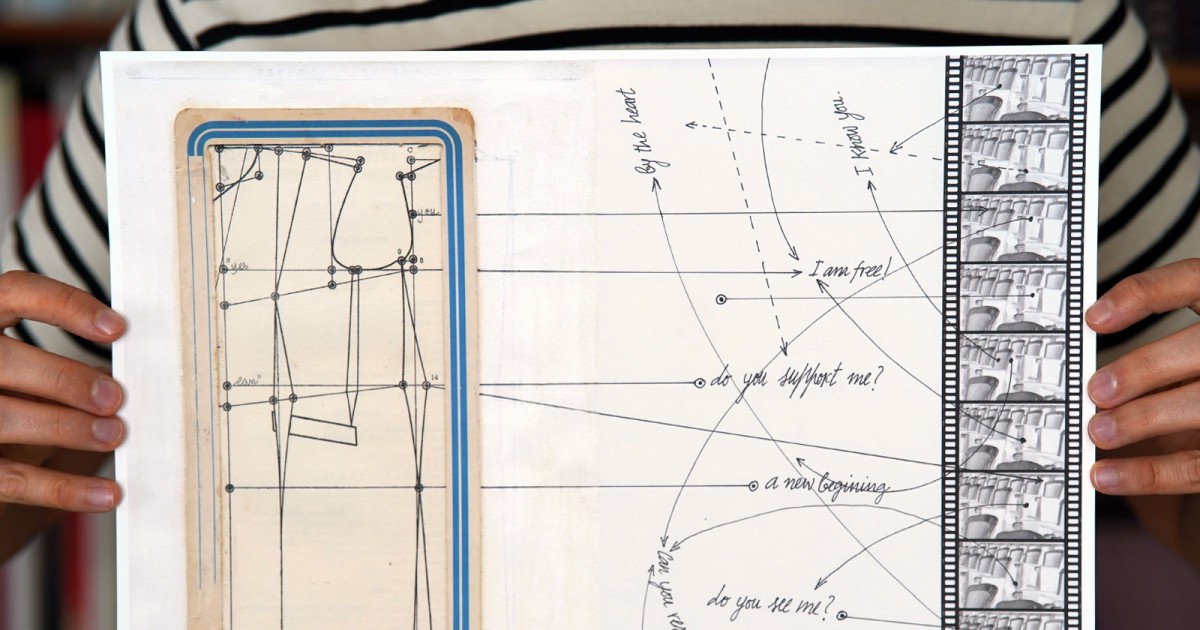 By the heart
I know you.
C
you
9
8
"yes
I am free!
14
do you support me?
a new begining
Can you
do you see me?